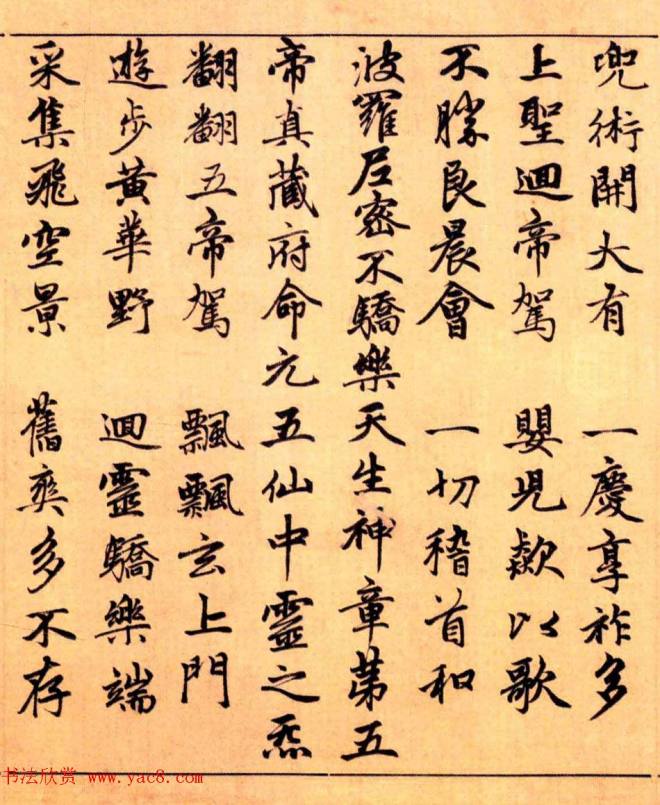 兜術開大有 一慶享祚多
上聖迴帝駕 嬰児歘以歌
不勝良晨會 一切稽首和
波羅尼密不驕樂天生神章第五
帝真藏府命元五仙中靈之炁
翻翻五帝駕 飄飄玄上門
遊步黃華野 迴靈驕樂端
采集飛空景 舊爽多不存
书法欣赏 www.yac8.com